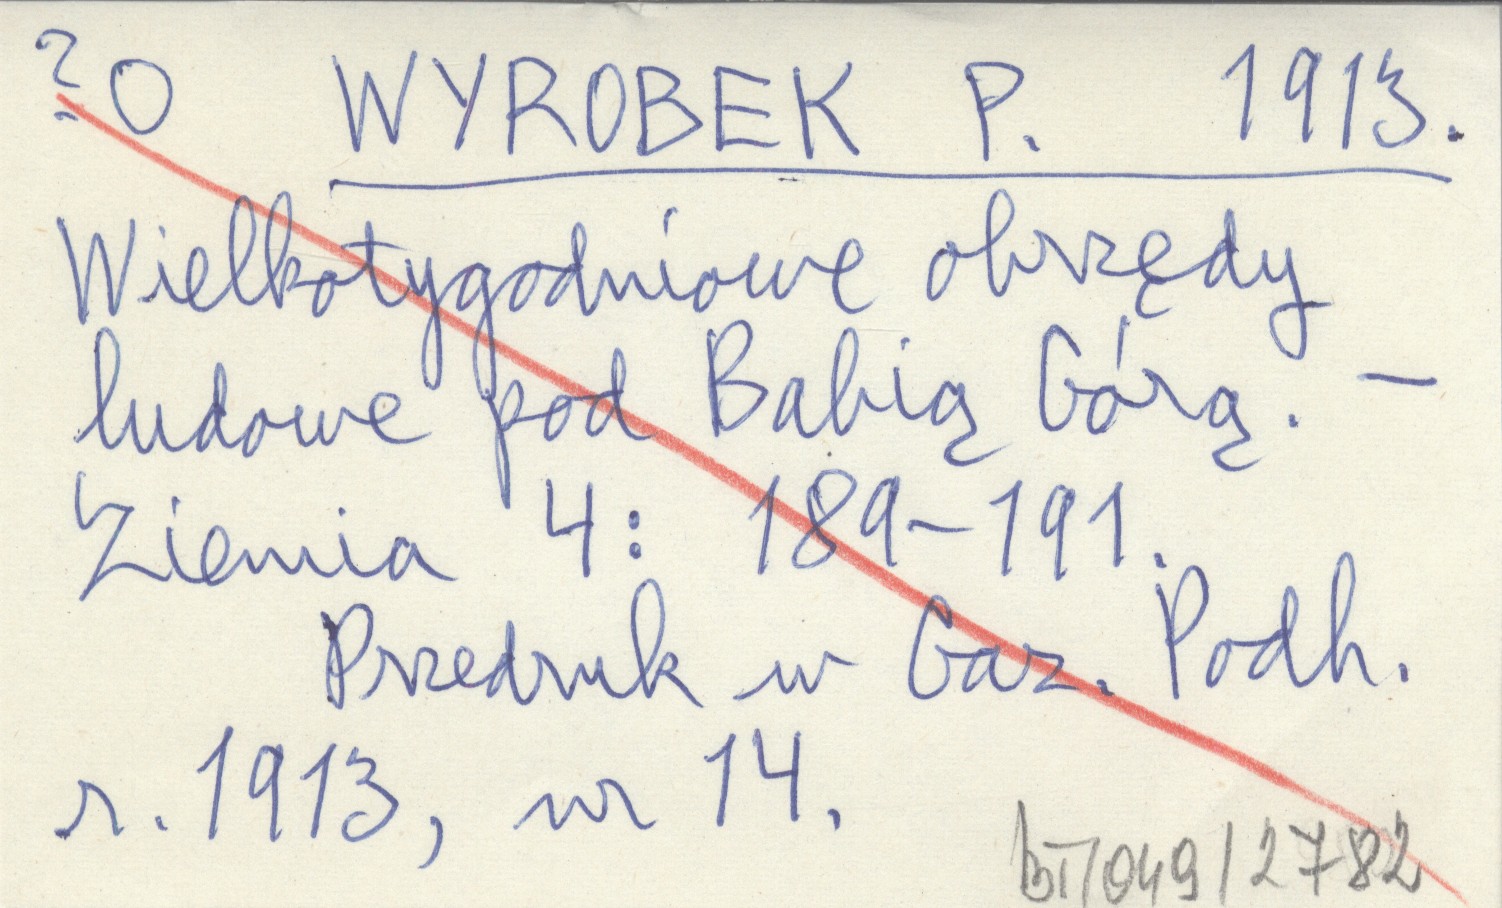 ? O WYROBEK P. 1913.
Wielkotygodniowe obrzędy
ludowe pod Babią Górą. –
Ziemia 4: 189–191.
Przedruk w Gaz. Podh.
r. 1913, nr 14.
BT/049/2782